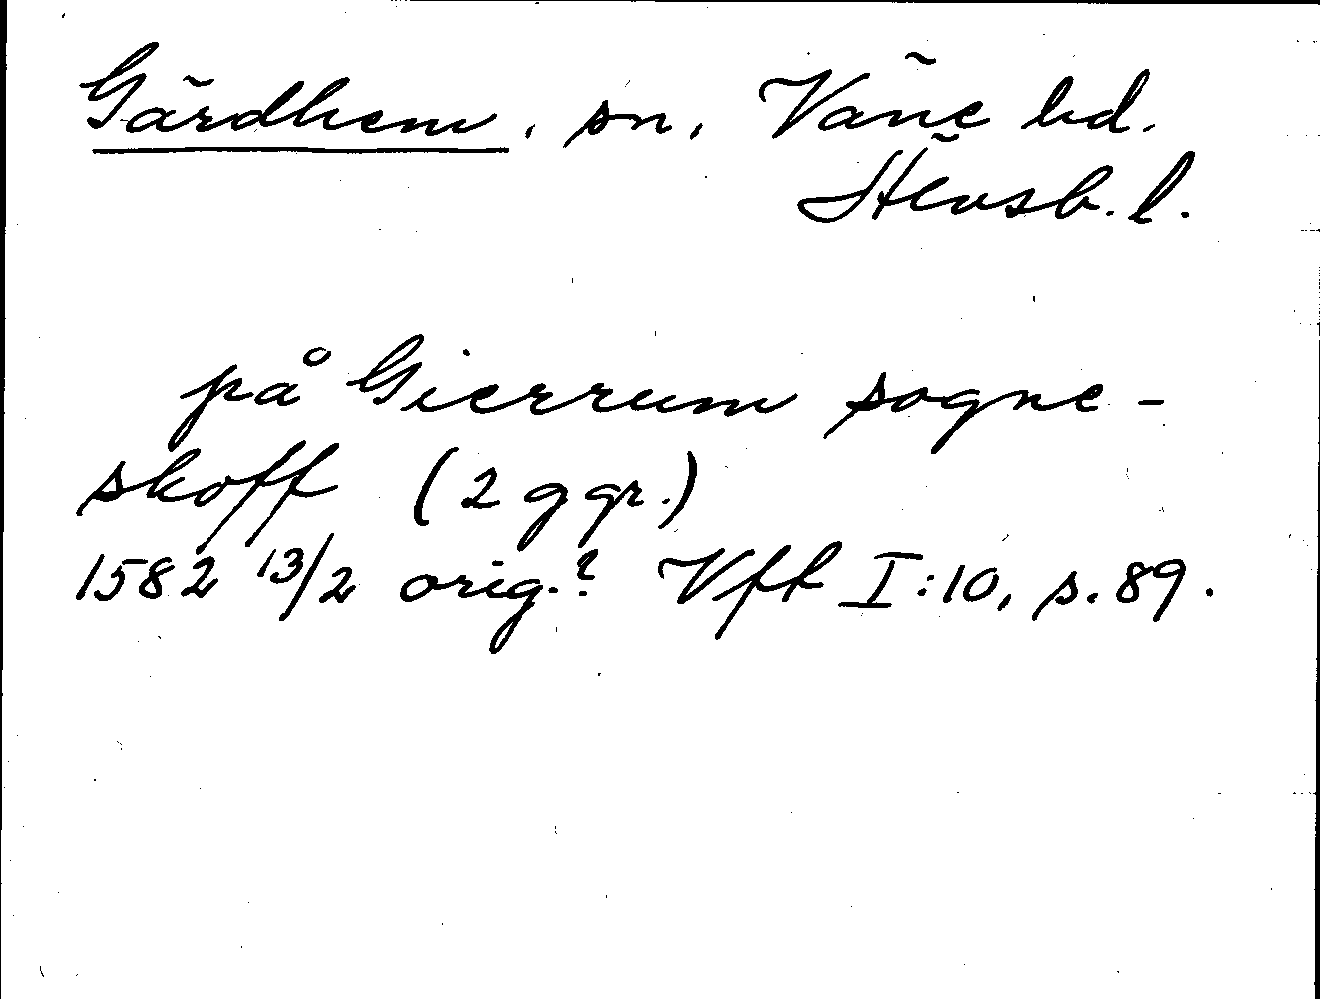 Gärdhem, sn, Väne hd.
Älvsb. l.
på Gierrum sogne-
skoff (2 ggr.)
1582 13/2 orig.? Vft I:10, s. 89.